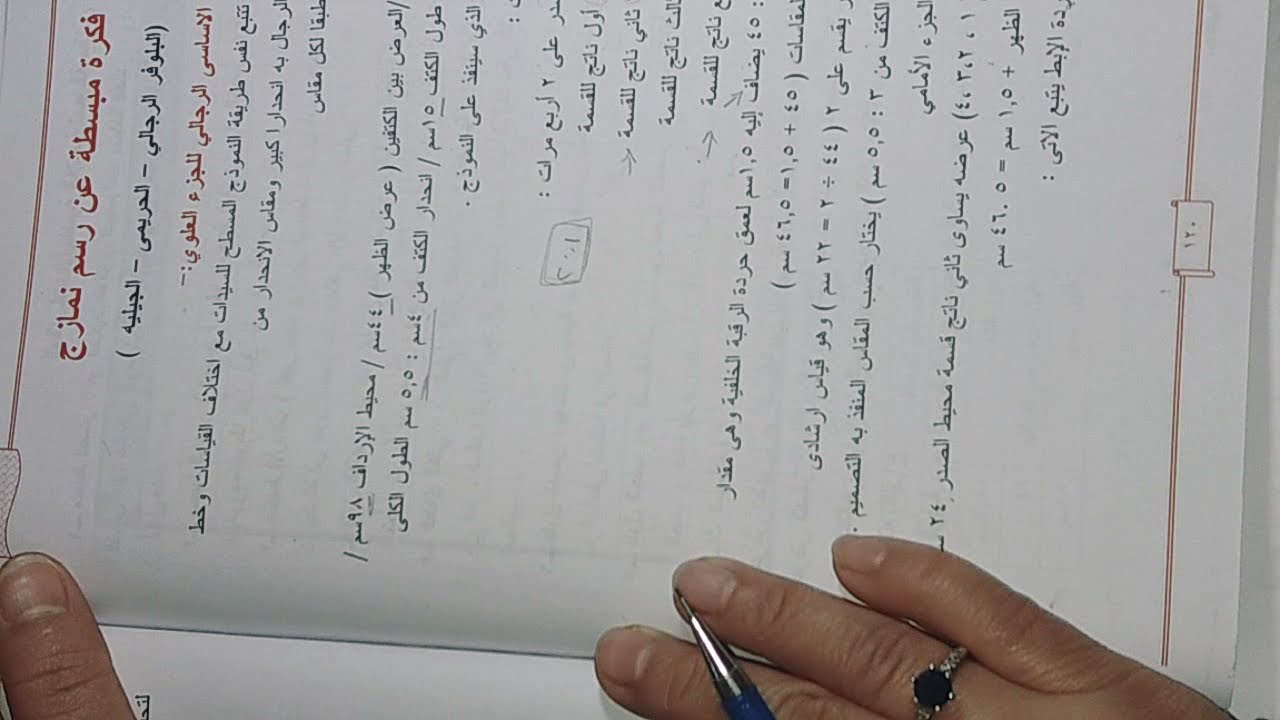 فكرة مبسطة عن رسم نمازج
(البلوفر الرجالي – الحريمى – الجيليه )
الاساسى الرجالي للجزء العلوي:–
تتبع نفس طريقة النموذج المسطح للسيدات مع اختلاف القياسات وخط
الرجال به انحدارا كبير ومقاس الانحدار من
طبقا لكل مقاس
/العرض بين الكتفين ( عرض الظهر ) ٤٤سم / محيط الإرداف ٩٨سم /
طول الكتف ١٥سم / انحدار الكتف من ٤سم : ٥,٥ سم الطول الكلى
الذي سينفذ على النموذج .
در على ٢ أربع مرات :
أول ناتج للقسمة
ثاني ناتج للقسمة
ناتج للقسمة
ناتج للقسمة
: ٤٥ يضاف إليه ١,٥سم لعمق حردة الرقبة الخلفية وهى مقدار
( ٤٥ + ١,٥ = ٤٦,٥ سم )
يقسم على ٢ ( ٤٤ ÷ ٢ = ٢٢ سم ) وهو قياس ارشادى
الكتف من ٣ : ٥,٥ سم ) يختار حسب المقاس المنفذ به التصميم .
الجزء الأمامي
١ ، ٢ ،٣ ،٤ ) عرضه يساوى ثاني ناتج قسمة محيط الصدر ٢٤
الظهر + ١,٥ سم = ٤٦.٥ سم
حردة الإبط يتبع الاتى :
١٢٠